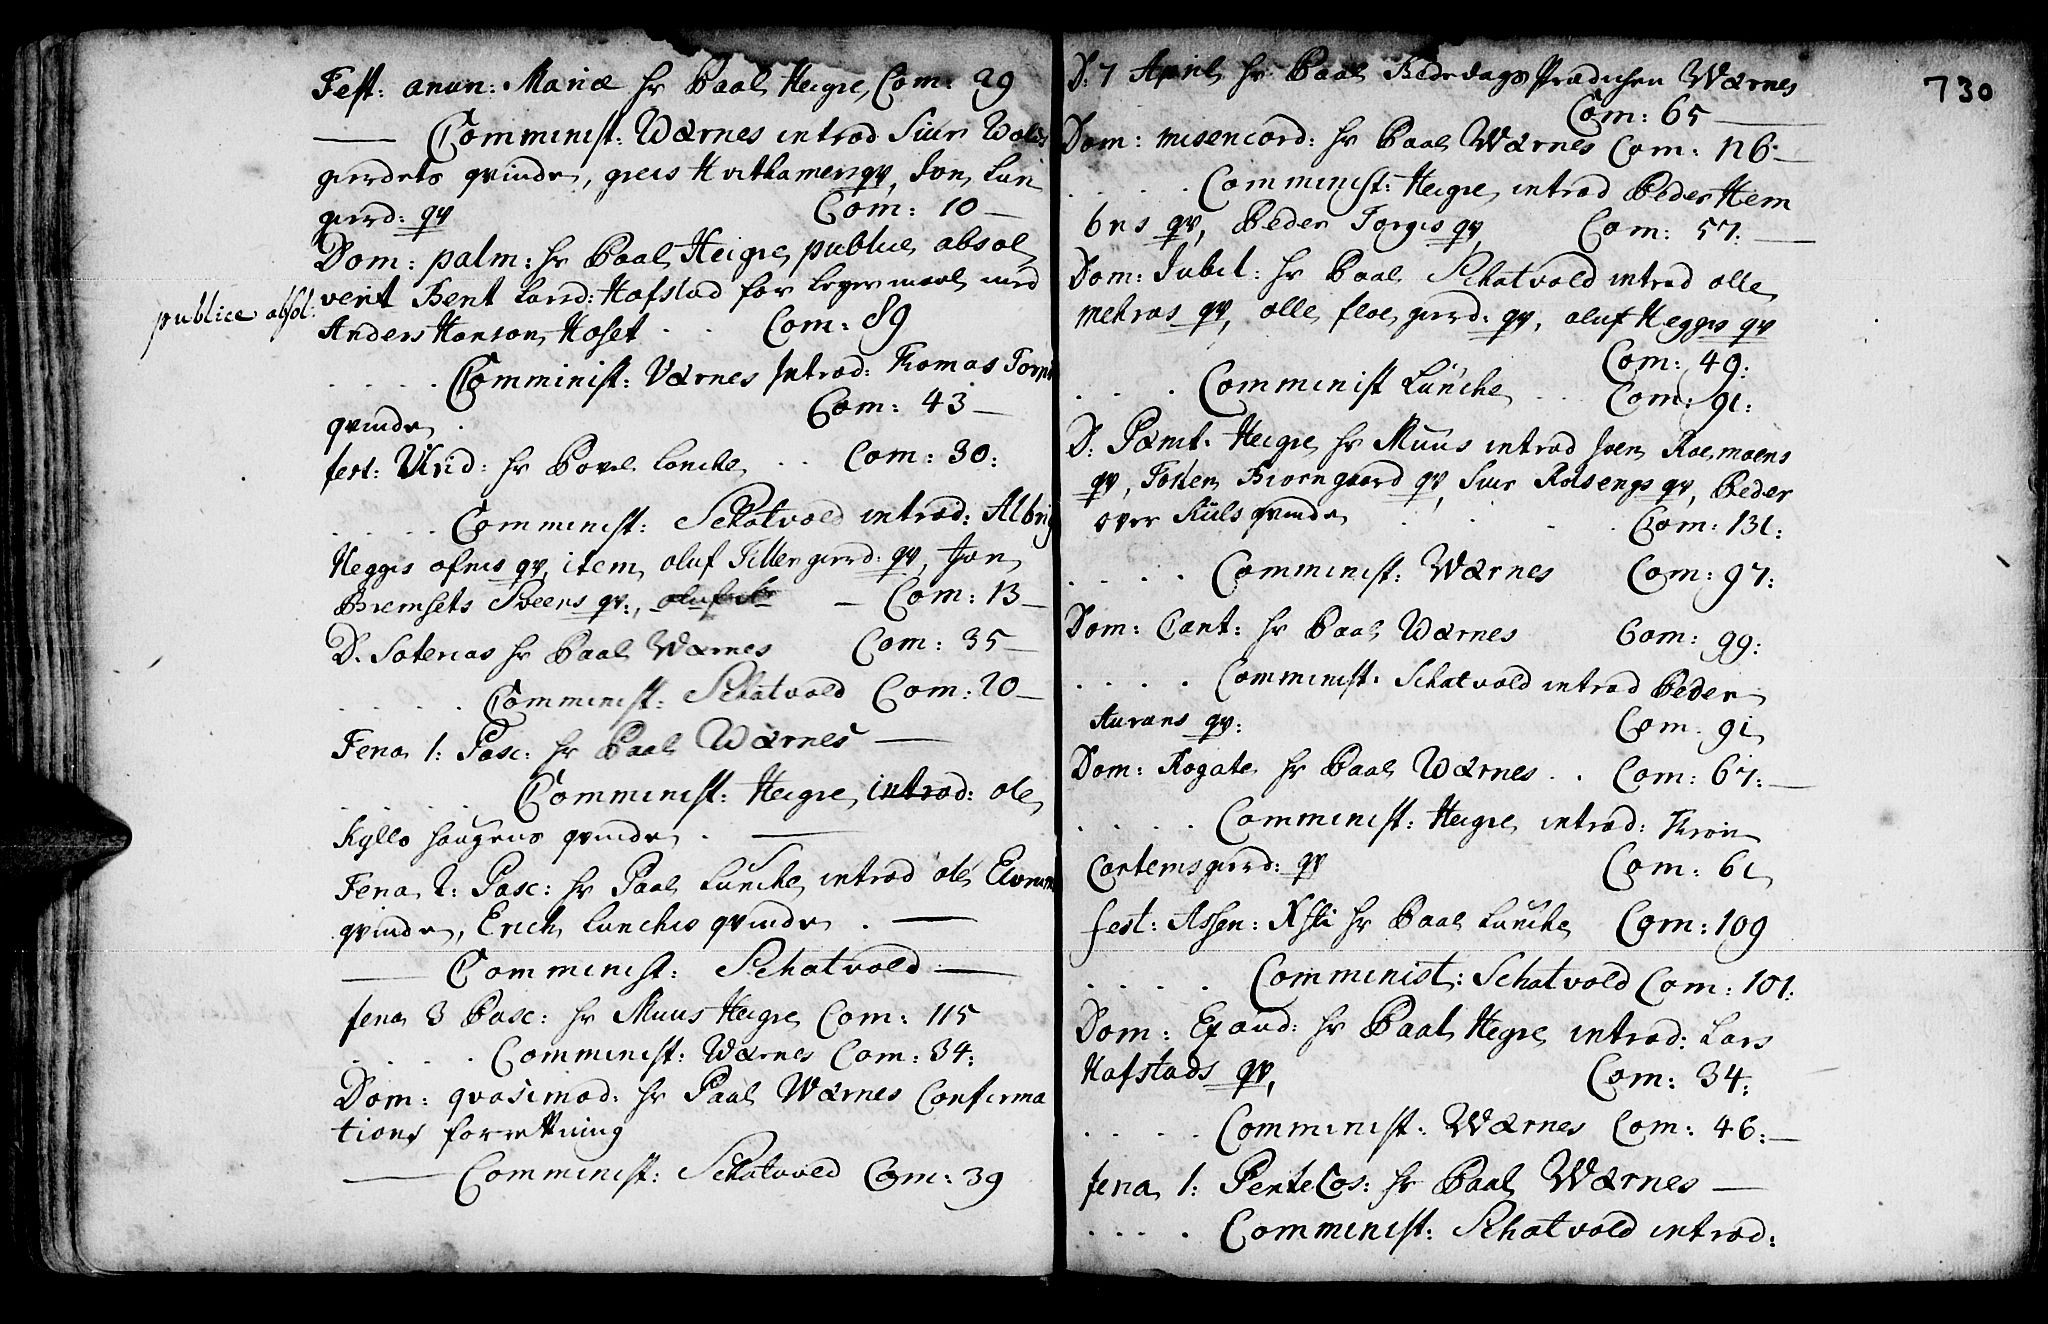 Fest: anun: Mariæ hr Paal Heigre Com: 29
— Comminist: Wærnes introd Siur Wols
gierdets qvinde, greis Hvithamers qv, Jon Lun
gierd: qv Com: 10 —
Dom: palm: hr Paal Heigre publice absol
publice absol:
verit Bent Larsd: Hofstad for leyermaal med
Anders Hanson Hoset . . Com: 89
. . . . Comminist: Værnes introd: Thomas Torp
qvinde . Com: 43 —
fest: Virid: hr Povel Lonche . . Com: 30:
. . . . Comminist: Schatvold introd: Albrig
Heggis ofnes qv, item oluf Tiller gierd: qv, Jon
Bremsets Sveens qv:, — Com: 13 —
D. Soterias hr Paal Wærnes Com: 35 —
. . . . Comminist: Schatvold Com: 20 —
Feria 1: Pasc: hr Paal Wærnes —
. . . . Comminist: Heigre introd: ole
Kyllo haugens qvinde . —
Feria 2: Pasc: hr Paal Lunche introd ole Elvrum
qvinde, Erich Lunches qvinde . —
— Comminist: Schatvold —
feria 3 Pasc: hr Muus Heigre Com: 115
. . . . Comminist: Wærnes Com: 34:
Dom: quasimod: hr Paal Wærnes Confirma
tions forretning
— Comminist: Schatvold Com: 39
730
D: 7 April hr Paal Bededags Prædichen Wærnes
Com: 65 —
Dom: misericord: hr Paal Wærnes Com: 126 —
. . . . Comminist: Heigre introd Peder Hem
bres qv, Peder Torgis qv, Com: 57: —
Dom: Jubil: hr Paal Schatvold introd olle
mehras qv, olle floe gierd: qv, oluf Heggis qv
Com: 49:
. . . . Comminist Lunche . . Com: 91:
D: Pænit. Heigre hr Muus introd Sven Roe moens
qv, Tosten Biorngaard qv, Siur Rolsengs qv, Peder
over Kuls qvinde . . . . Com: 131:
. . . . Comminist: Wærnes Com: 97:
Dom: Cant: hr Paal Wærnes Com: 99:
. . . . Comminist. Schatvold introd Peder
Aurans qv: Com. 91
Dom: Rogate hr Paal Wærnes . . Com: 67: —
. . . . Comminist: Heigre introd: Tron
Cartemsgierd: qv Com: 61
fest: Assen: Xsti hr Paal Lunche Com: 109
. . . . Comminist: Schatvold Com: 101:
Dom: Exaud: hr Paal Hegre introd: Lars
Hofstads qv, Com: 34:
. . . . Comminist: Wærnes Com: 46: —
feria 1: Pentecos: hr Paal Wærnes —
. . . . Comminist: Schatvold introd: